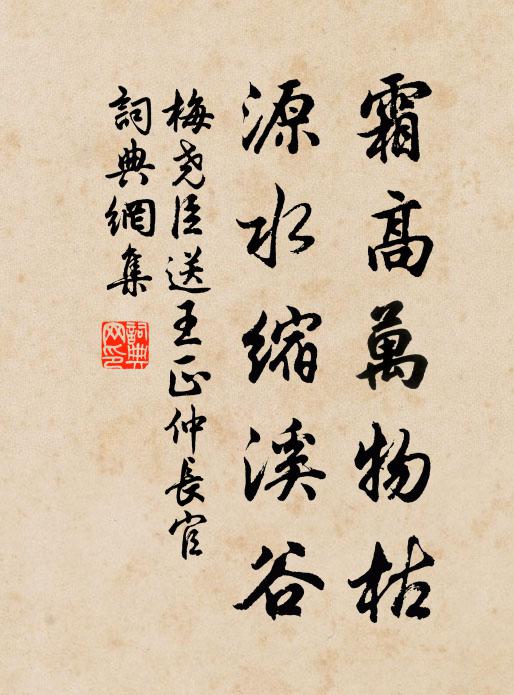 霜高萬物枯
源水缩溪谷
梅尧臣送王正仲長官
詞典網集
詞典网印